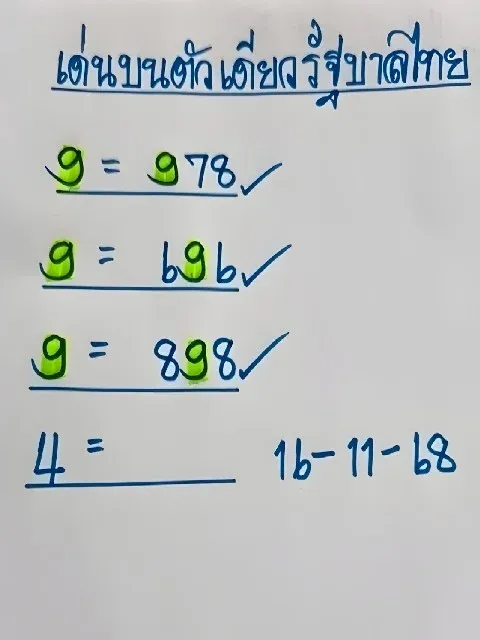 เด่นบนตัวเดียวรัฐบาลไทย
9 = 978 ✓
9 = 696 ✓
9 = 898 ✓
4 = 16-11-68